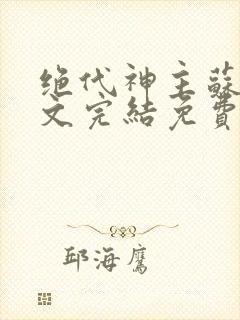 绝代神主蘇
文完結免費
邱海鷹